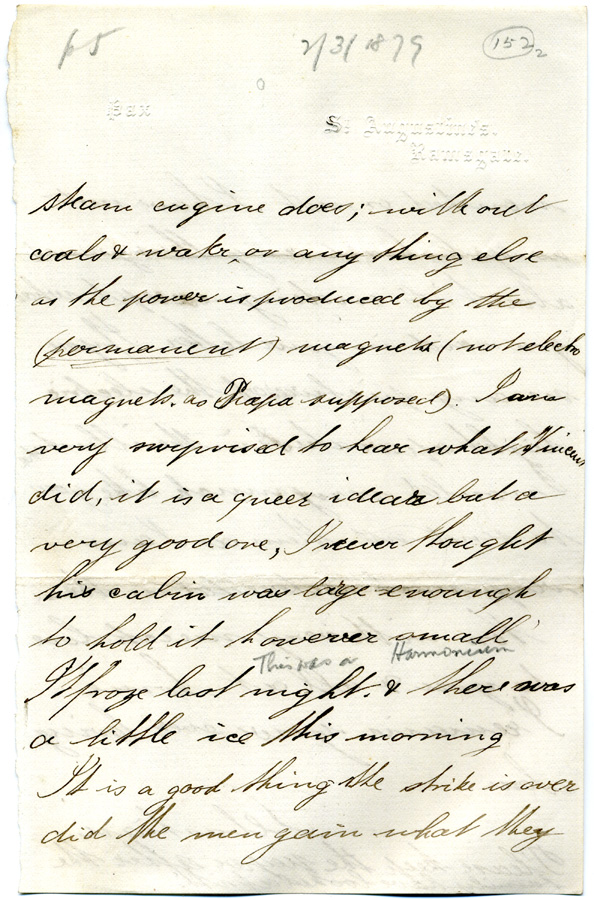 p5 2/3/1879 152 2
Pax
St. Augustine's.
Ramsgate.
steam engine does; without
coals & water, or any thing else
as the power is produced by the
(permanent) magnets (not electro
magnets. as Papa supposed). I am
very surprised to hear what Vincent
did, it is a queer idear but a
very good one, I never thought
his cabin was large enough
to hold it however small
This was a Harmonium
It froze last night. & there was
a little ice this morning
It is a good thing the strike is over
did the men gain what they